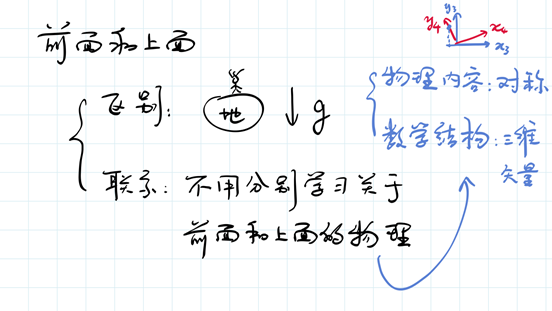 前面和上面
y₃
y₄
x₄
x₃
区别:
地
g
物理内容:对称
数学结构:三维
矢量
联系:不用分别学习关于
前面和上面的物理